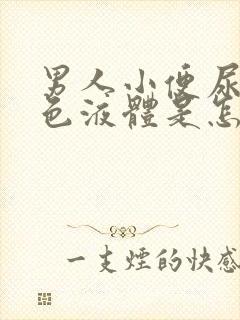 男人小便尿
色液體是怎
一支煙的快感